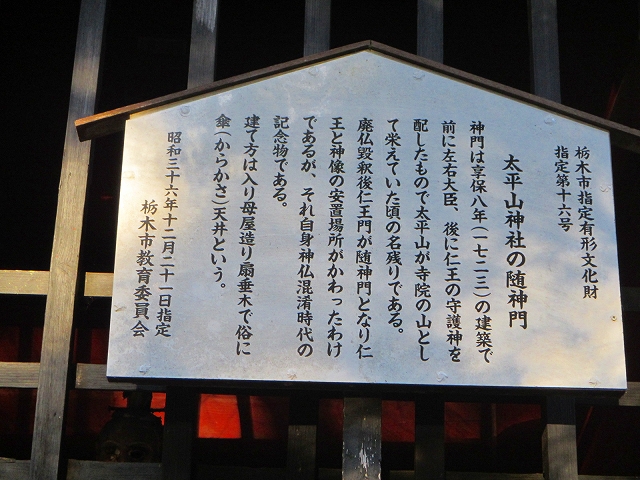 栃木市指定有形文化財
指定第十六号
太平山神社の随神門
神門は享保八年(一七二三)の建築で
前に左右大臣、後に仁王の守護神を
配したもので太平山が寺院の山とし
て栄えていた頃の名残りである。
廃仏毀釈後仁王門が随神門となり仁
王と神像の安置場所がかわったわけ
であるが、それ自身神仏混淆時代の
記念物である。
建て方は入り母屋造り扇垂木で俗に
傘(からかさ)天井という。
昭和三十六年十二月二十一日指定
栃木市教育委員会